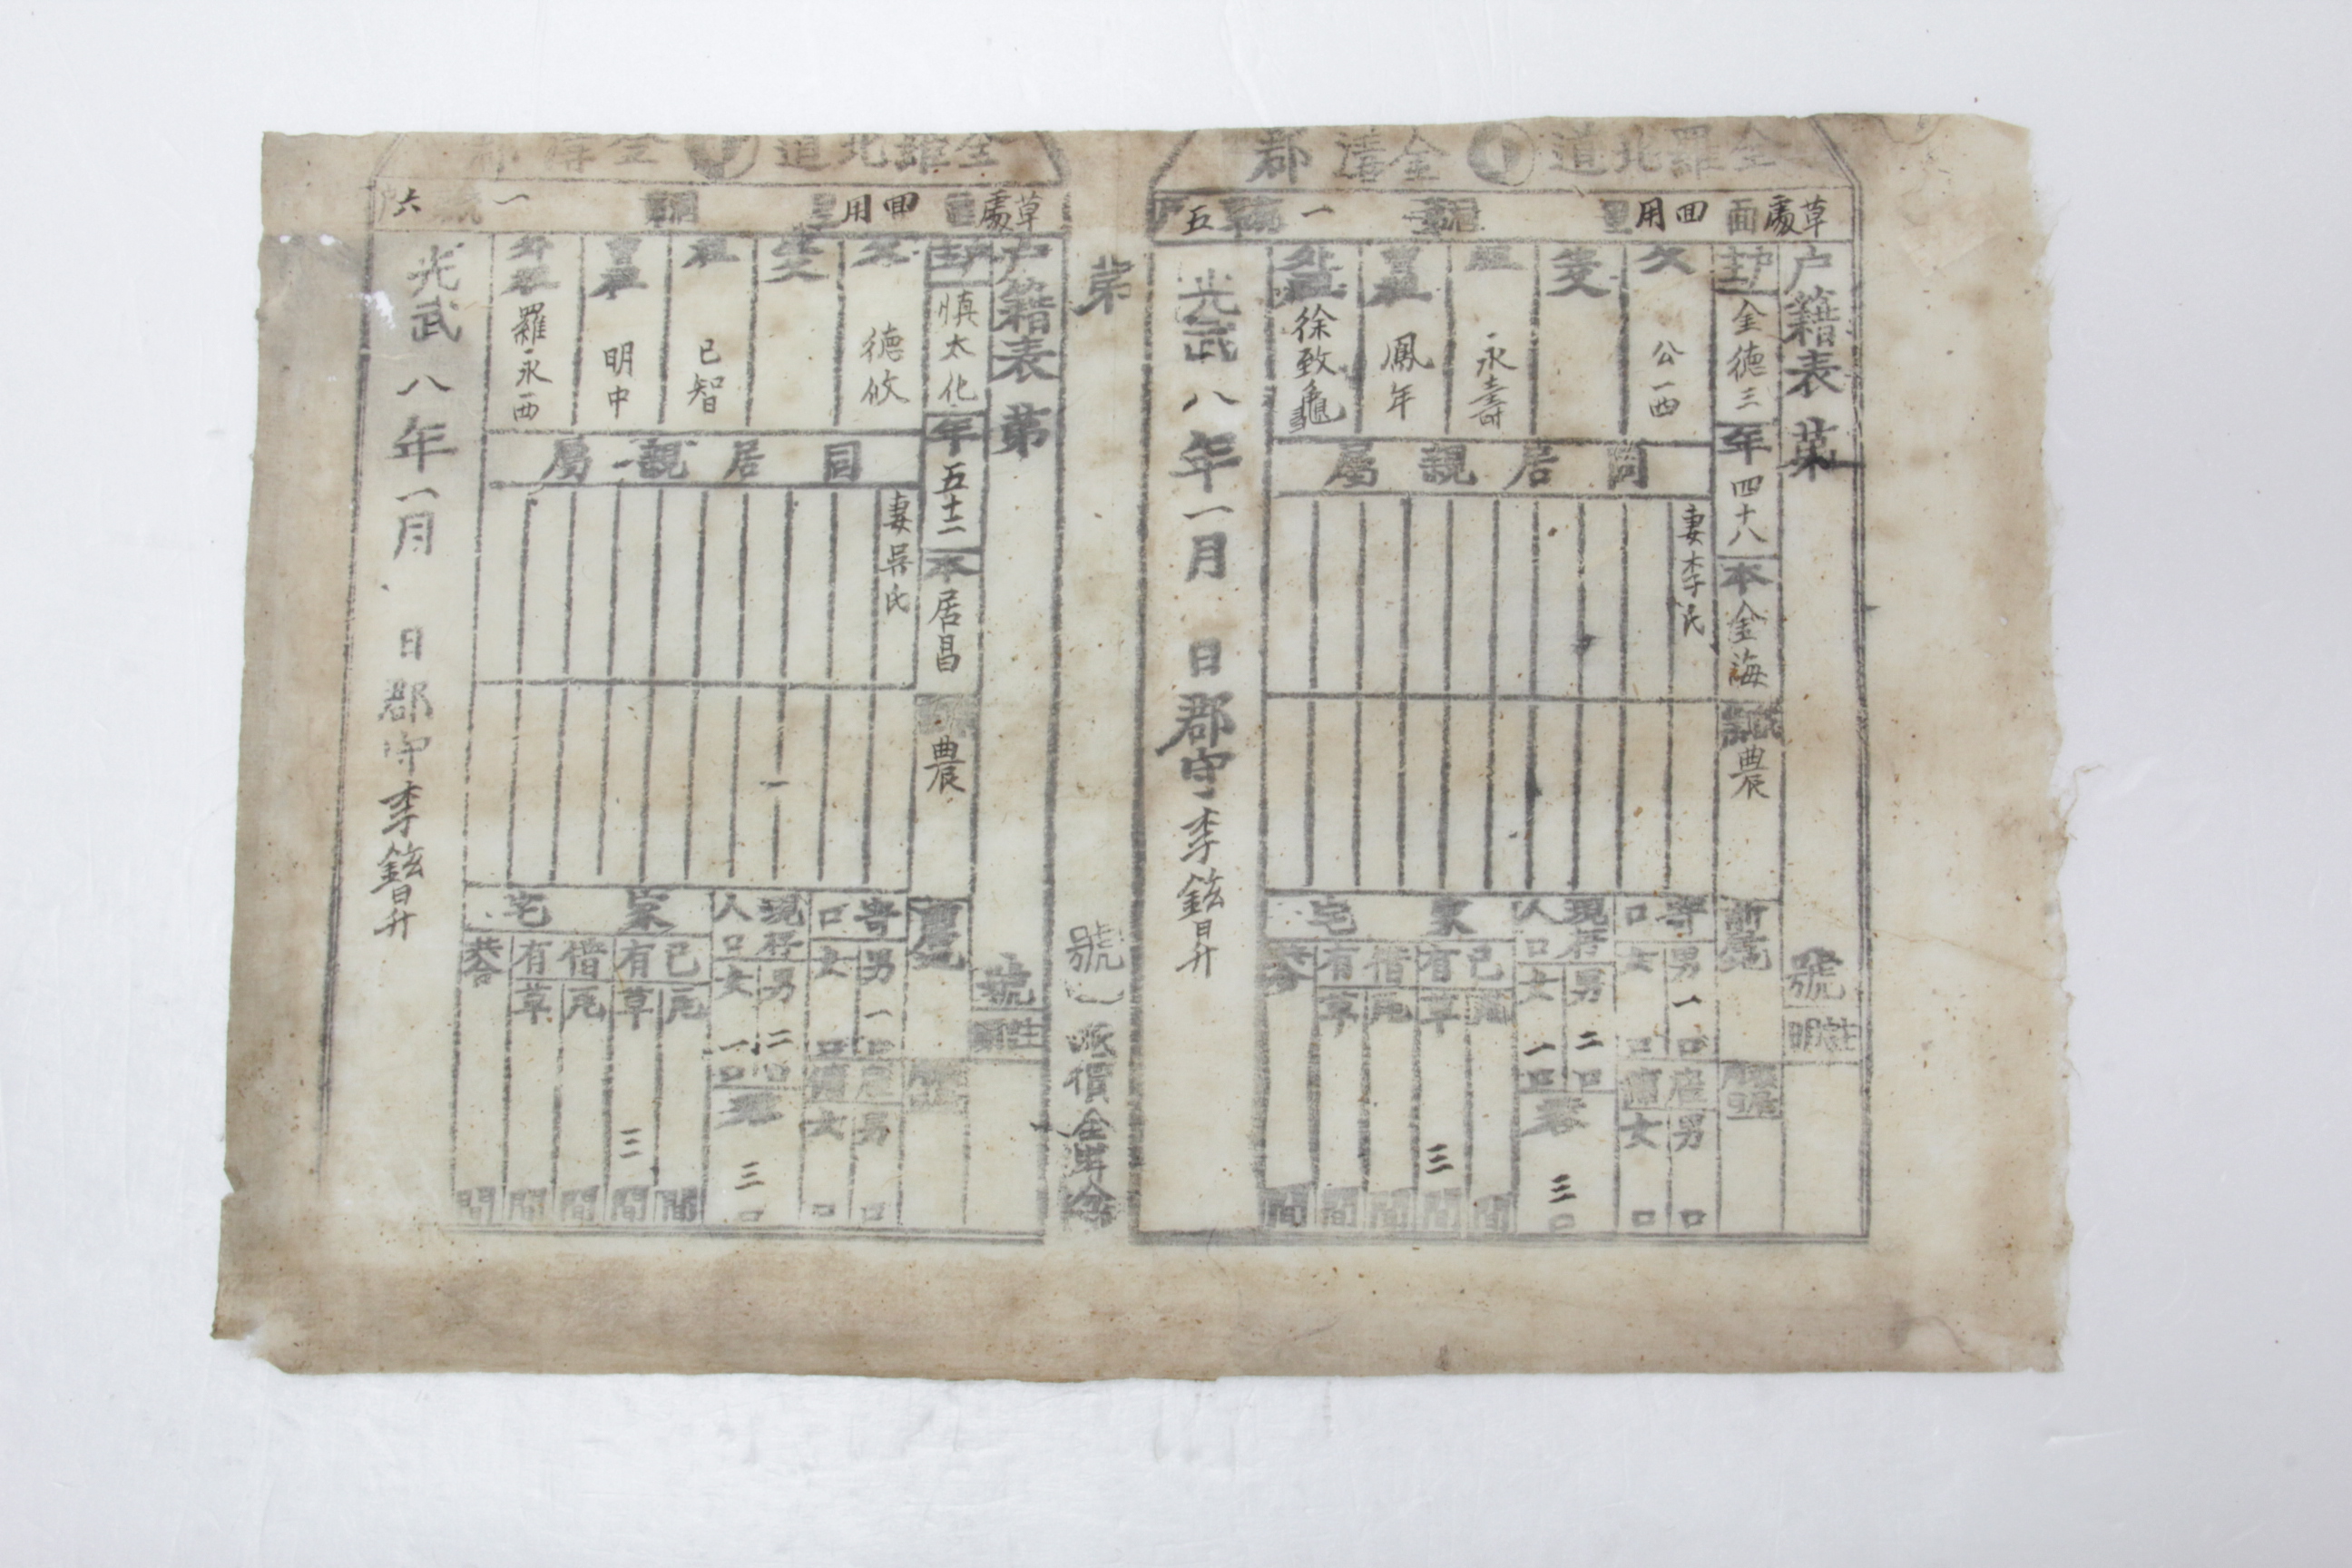 全羅北道 金溝郡
草處面 回用里 統 一 號 五 戶
戶籍表 第 號
戶主 金德三 年 四十八 本 金海 職 農
父 公西
生父
祖 永壽
曾祖 鳳年
外祖 徐致龜
同居親屬
妻 李氏
寄口 男 一 口 女 口
雇傭 男 口 女 口
現存人口 男 二 口 女 一 口
共 三 口
家宅
己有 瓦 間 草 三 間
借有 瓦 間 草 間
共合 間
光武 八 年 一 月 日 郡守 李
第 號
全羅北道 金溝郡
草處面 回用里 統 一 號 六 戶
戶籍表 第 號
戶主 愼太化 年 五十二 本 居昌 職 農
父 德攸
生父
祖 已智
曾祖 明中
外祖 羅永西
同居親屬
妻 吳氏
寄口 男 一 口 女 口
雇傭 男 口 女 口
現存人口 男 二 口 女 一 口
共 三 口
家宅
己有 瓦 間 草 三 間
借有 瓦 間 草 間
共合 間
光武 八 年 一 月 日 郡守 李